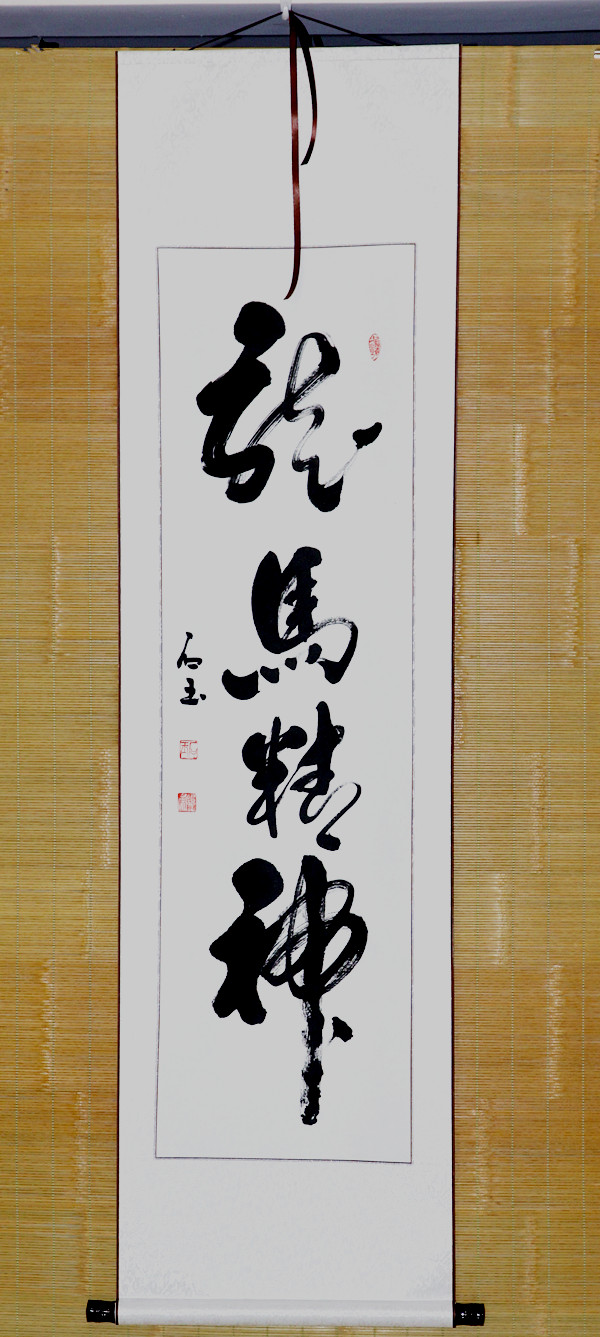 龍馬精神
石玉